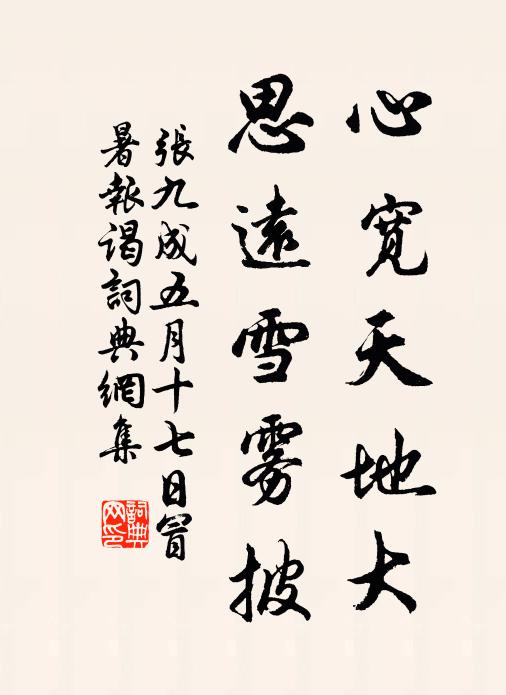 心寬天地大
思遠雪雾披
張九成五月十七日冒
暑報謁詞典網集
詞典
网印